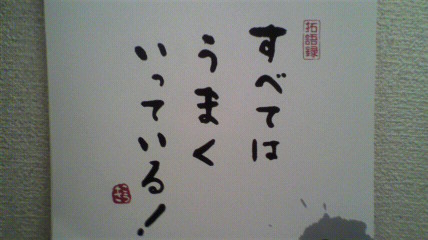 拓語録
すべては
うまく
いっている!